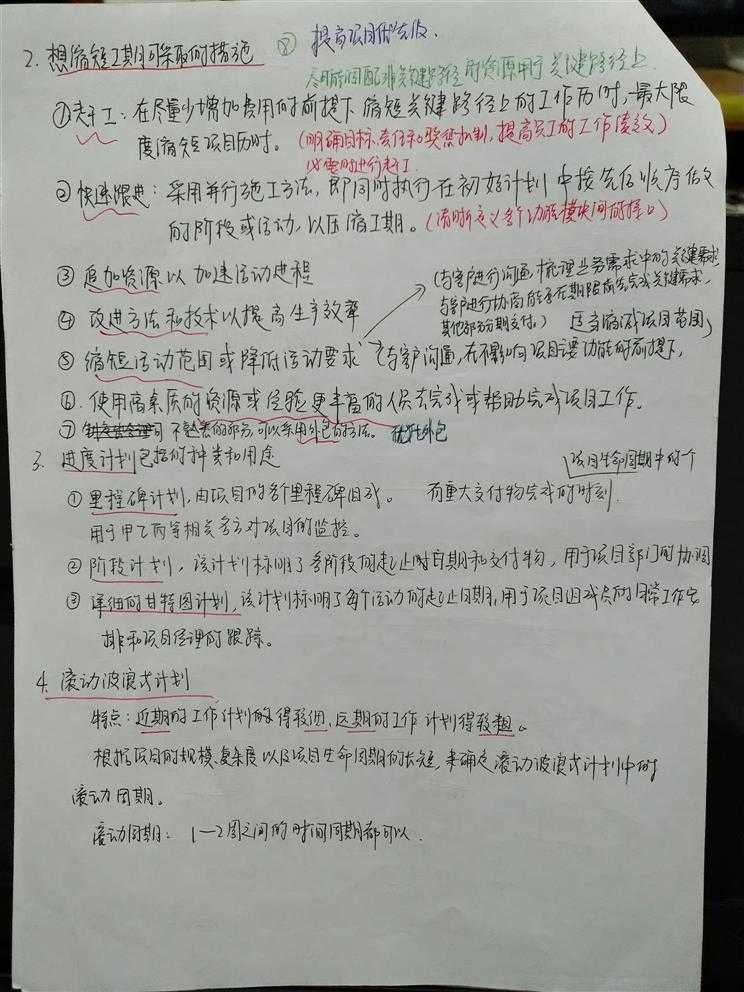 2. 想缩短工期可采取的措施 ⑧ 提高项目优先级.
尽可能调配非关键路径的资源用于关键路径上
①赶工:在尽量少增加费用的前提下缩短关键路径上的工作历时,最大限
度缩短项目历时。(明确目标、责任和奖惩机制,提高员工的工作绩效)
必要时进行赶工
②快速跟进:采用并行施工方法,即同时执行在初始计划中按先后顺序
的阶段或活动,以压缩工期。(清晰定义各个功能模块间的接口)
③追加资源以加速活动进程
④改进方法和技术以提高生产效率
(与客户进行沟通梳理业务需求中的关键需求
与客户进行协商能否在期限前先完成关键需求,
其他部分分期交付。)
⑤缩短活动范围或降低活动要求(与客户沟通,在不影响项目主要功能的前提下,
适当缩减项目范围)
⑥.使用高素质的资源或经验更丰富的人员去完成或帮助完成项目工作。
⑦不熟悉的部分,可以采用外包的方法。
3. 进度计划包括的种类和用途
①里程碑计划,由项目的各个里程碑组成。
项目生命周期中的一个
有重大交付物完成的时刻.
用于甲乙丙等相关多方对项目的监控。
②阶段计划,该计划标明了各阶段的起止时日期和交付物,用于项目部门的协调
③详细的甘特图计划,该计划标明了每个活动的起止日期,用于项目组成员的日常工作安
排和项目经理的跟踪。
4. 滚动波浪式计划
特点:近期的工作计划的得较细,远期的工作计划得较粗。
根据项目的规模、复杂度以及项目生命周期的长短,来确定滚动波浪式计划中的
滚动周期。
滚动周期:1—2周之间的时间周期都可以.